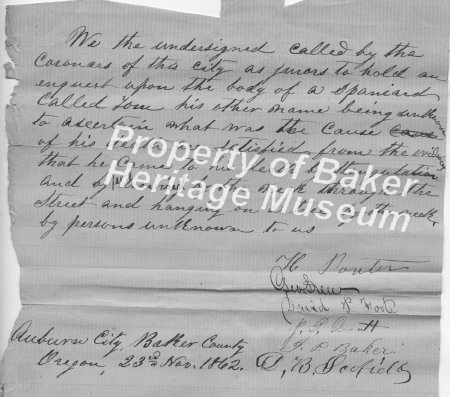 We the undersigned called by the
coroners of this city as jurors to hold an
enquest upon the body of a Spaniard
Called Tom his other name being unknown
to ascertain what was the cause
of his death satisfied from the evidence
that he came to his death by
and by the through the
Street and hanging on a tree by the neck
by persons unknown to us
Property of Baker
Heritage Museum
H. Porter
Geo Drew
David P.
J. P. Baker
D, B. Scofield
Auburn City, Baker County
Oregon, 23rd Nov. 1862.